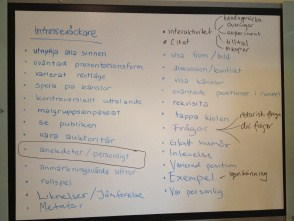 Intresseväckare
utnyttja alla sinnen
oväntad presentationsform
varierat röstläge
spela på känslor
kontroversiellt uttalande
målgruppsanpassat
se publiken
vara auktoritär
anekdoter/personligt
anmärkningsvärda siffror
rollspel
Liknelser/Jämförelse
Metafor
interaktivitet
övningar
experiment
Citat
tilltal
visa film/bild
diskussion/konflikt
visa känslor
oväntade positioner i rummet
rekvisita
tappa kjolen
Frågor
retorisk fråga
Galet humör
Inlevelse
Varierad position
Exempel
Var personlig